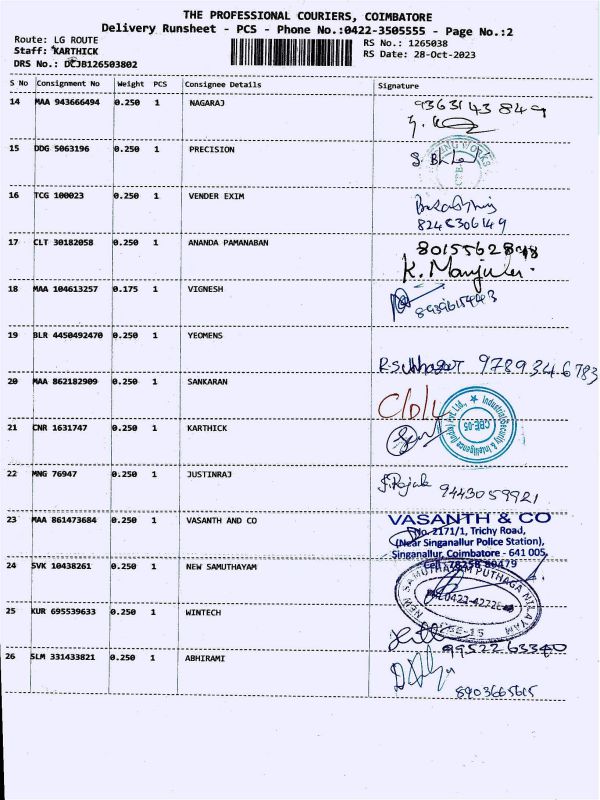 THE PROFESSIONAL COURIERS, COIMBATORE
Delivery Runsheet - PCS - Phone No.:0422-3505555 - Page No.:2
Route: LG ROUTE
RS No.: 1265038
Staff: KARTHICK
RS Date: 28-Oct-2023
DRS No.: DCJB126503802
S No Consignment No Weight PCS Consignee Details Signature
14 MAA 943666494 0.250 1 NAGARAJ 9363143849
15 DDG 5063196 0.250 1 PRECISION
16 TCG 100023 0.250 1 VENDER EXIM
8246306149
17 CLT 30182058 0.250 1 ANANDA PAMANABAN
K. Manjula.
18 MAA 104613257 0.175 1 VIGNESH
19 BLR 4450492470 0.250 1 YEOMENS
9789346783
20 MAA 862182909 0.250 1 SANKARAN
21 CNR 1631747 0.250 1 KARTHICK
Industrial Security & Intelligence (India) Pvt. Ltd., CBE-05
22 MNG 76947 0.250 1 JUSTINRAJ
9443059921
23 MAA 861473684 0.250 1 VASANTH AND CO
VASANTH & CO
No. 2171/1, Trichy Road,
(Near Singanallur Police Station),
Singanallur, Coimbatore - 641 005.
Cell: 78258 80479
24 SVK 10438261 0.250 1 NEW SAMUTHAYAM
NEW SAMUTHAYAM PUTHAGA NILAYAM
25 KUR 695539633 0.250 1 WINTECH
9952263340
26 SLM 331433821 0.250 1 ABHIRAMI
8903665615